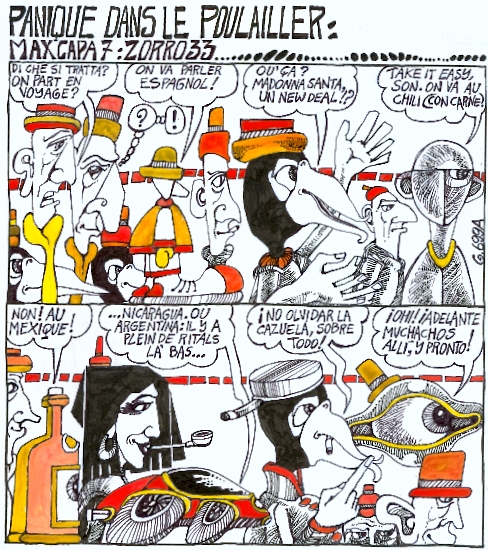 PANIQUE DANS LE POULAILLER:
MAXCAPA 7: ZORRO 33
DI CHE SI TRATTA?
ON PART EN
VOYAGE?
ON VA PARLER
ESPAGNOL!
OU' ÇA?
MADONNA SANTA,
UN NEW DEAL!?
TAKE IT EASY,
SON. ON VA AU
CHILI (CON CARNE)
?
-!
NON! AU
MEXIQUE!
...NICARAGUA. OU
ARGENTINA: IL Y A
PLEIN DE RITALS
LA' BAS...
¡NO OLVIDAR LA
CAZUELA, SOBRE
TODO!
¡OHI! ¡ADELANTE
MUCHACHOS
ALLI, Y PRONTO!